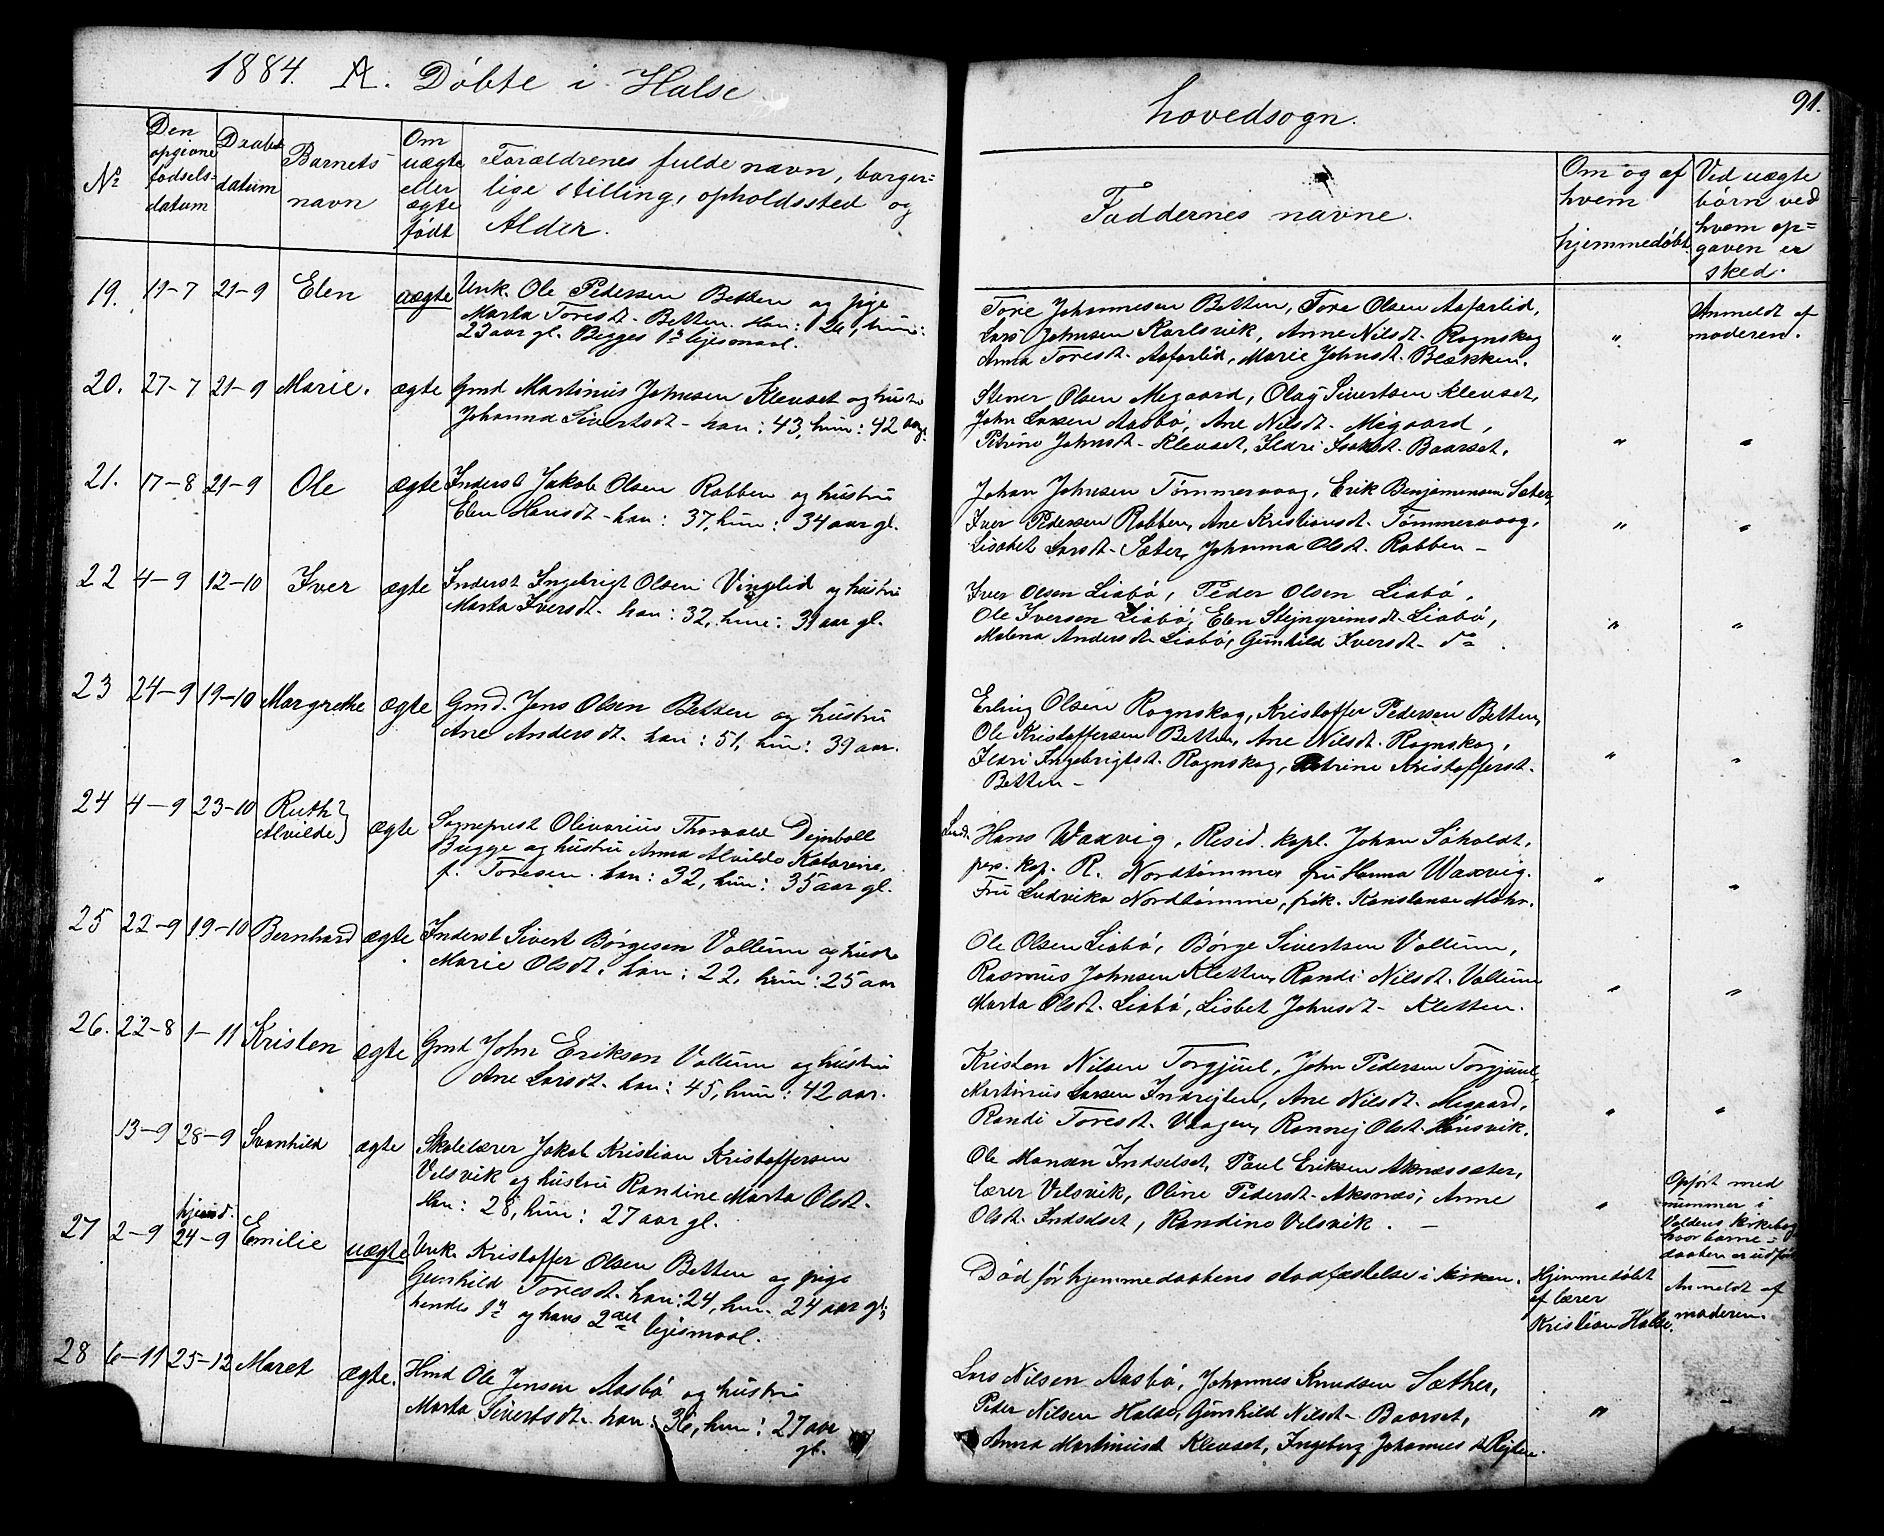 1884. A. Døbte i Halse
hovedsogn.
91.
No
Den opgivne fødsels-datum
Daabs datum
Barnets navn
Om uægte eller ægte født
Forældrenes fulde navn, borger=
lige stilling, opholdssted og
Alder.
Faddernes navne.
Om og af hvem hjemmedøbt.
Ved uægte børn ved hvem op=gaven er sked.
19. 19-7 21-9 Elen uægte Unk. Ole Pedersen Betten og pige
Marta Toresdt. Betten. Han: 24, hun:
23 aar gl. Begges 1ste lejesmaal.
Tore Johannesen Betten, Tore Olsen Aafarlid,
Lars Johnsen Karlsvik, Anne Nilsdt. Rognskog
Anna Toresdt. Aafarlid, Marie Johnsdt. Blækken.
"
Anmeldt af
moderen.
20. 27-7 21-9 Marie. ægte Gmd Martinus Johnsen Klevset og hustr
Johanna Sivertsdt - han: 43, hun: 42 aar gl.
Stener Olsen Megaard, Olaf Sivertsen Klevset,
John Larsen Aasbø, Ane Nilsdt. Megaard,
Petrine Johnsdt. Klevset, Ildri Isaksdt. Baarset.
" "
21. 17-8 21-9 Ole ægte Inderst Jakob Olsen Rabben og hustru
Elen Hansdt - han: 37, hun: 34 aar gl.
Johan Johnsen Tømmervaag, Erik Benjamensen Sæter,
Iver Pedersen Rabben, Ane Kristiansdt. Tømmervaag,
Lisabet Larsdt. Sæter, Johanna Olsdt. Rabben -
" "
22 4-9 12-10 Iver ægte Inderst Ingebrigt Olsen Vinglid og hustru
Marta Iversdt. han: 32, hun: 39 aar gl.
Iver Olsen Liabø, Peder Olsen Liabø,
Ole Iversen Liabø, Elen Stejngrimsdt. Liabø,
Malena Andersdt. Liabø, Gunhild Iversdt - do.
" "
23 24-9 19-10 Margrethe ægte Gmd. Jens Olsen Betten og hustru
Ane Andersdt. han: 51, hun: 39 aar.
Erling Olsen Rognskog, Kristoffer Pedersen Betten,
Ole Kristoffersen Betten, Ane Nilsdt. Rognskog,
Ildri Ingebrigtsdt. Rognskog, Petrine Kristoffersdt.
Betten -
" "
24 4-9 23-10 Ruth Alvilde ægte Sogneprest Olivarius Thorvald Dejnboll
Bugge og hustru Anna Alvilde Katarine,
f. Toresen. han: 32, hun: 35 aar gl.
Hans Waxvig, Resid. kapl. Johan Søholdt,
pers. kap. R. Nordtømme, fru Hanna Waxvig.
Fru Ludvika Nordtømme, frøk. Konstanse Mohn.
" "
25 22-9 19-10 Bernhard ægte Inderst Sivert Børgesen Vollum og hustr
Marie Olsdt. han: 22, hun: 25 aar
Ole Olsen Liabø, Børge Sivertsen Vollum,
Rasmus Johnsen Kletten, Randi Nilsdt. Vollum
Marta Olsdt. Liabø, Lisbet Johnsdt - Kletten.
" "
26. 22-8 1-11 Kristen ægte Gmd John Eriksen Vollum og hustru
Ane Larsdt. han: 45, hun: 42 aar.
Kristen Nilsen Torgjuul, John Pedersen Torgjuul,
Martinus Larsen Indrejten, Ane Nilsdt. Megaard,
Randi Toresdt. Vaagen, Rannej Olsdt. Hønsvik.
" "
13-9 28-9 Svanhild ægte Skolelærer Jakob Kristian Kristoffersen
Velsvik og hustru Randine Marta Olsdt.
Han: 28, hun: 27 aar gl.
Ole Monsen Indselset, Paul Eriksen Aknæssæter,
lærer Velsvik, Oline Pedersdt. Aksnæs, Anne
Olsdt. Indselset, Randine Velsvik. -
"
Opført med
nummer i
Valdens kirkebog
hvor barne-
daaben er udført
27 2-9 hjemd. 24-9 Emilie uægte Unk. Kristoffer Olsen Betten og pige
Gunhild Toresdt. han: 24, hun 24 aar gl;
hendes 1ste og hans 2det lejesmaal.
Død før hjemmedaabens stadfæstelse i kirken.
Hjemmedøbt
af lærer
Kristian Halse.
Anmeldt af
moderen.
28 6-11 25-12 Maret ægte. Hmd Ole Jensen Aasbø og hustru
Marta Sivertsdt. han: 36, hun: 27 aar
gl.
Lars Nilsen Aasbø, Johannes Knudsen Sæther,
Peder Nilsen Halse, Gunhild Nilsdt - Baarset,
Anna Martinusd Klevset, Ingeborg Johannesd Rejten.
"